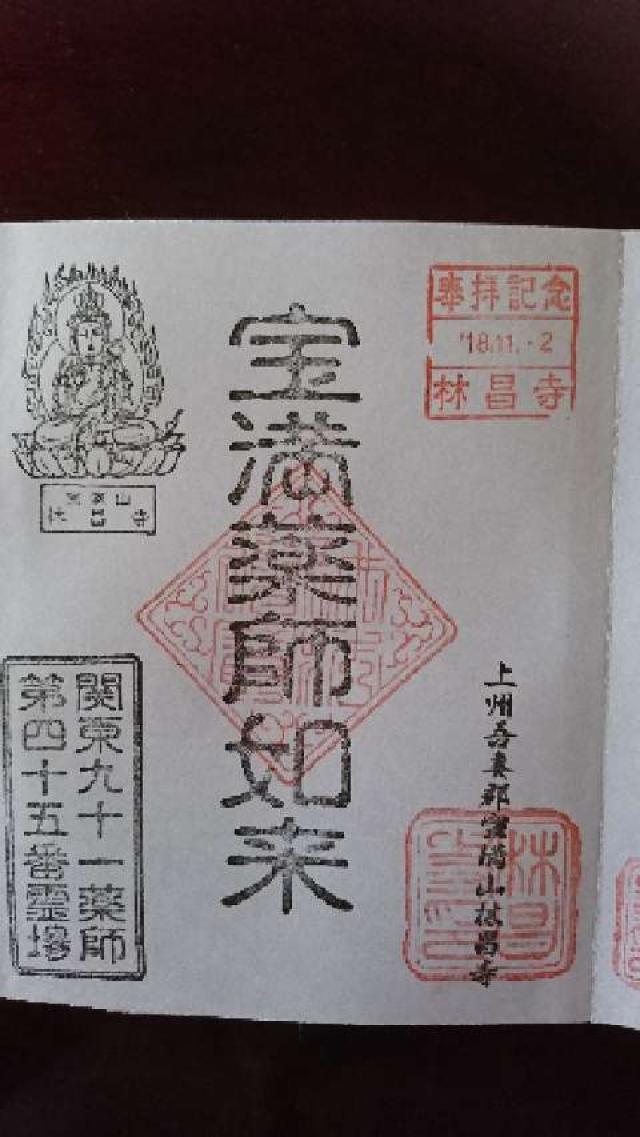 奉拝記念
'18.11.-2
林昌寺
上州吾妻郡宝満山林昌寺
林昌寺印
宝満薬師如来
林昌寺
関東九十一薬師
第四十五番霊場